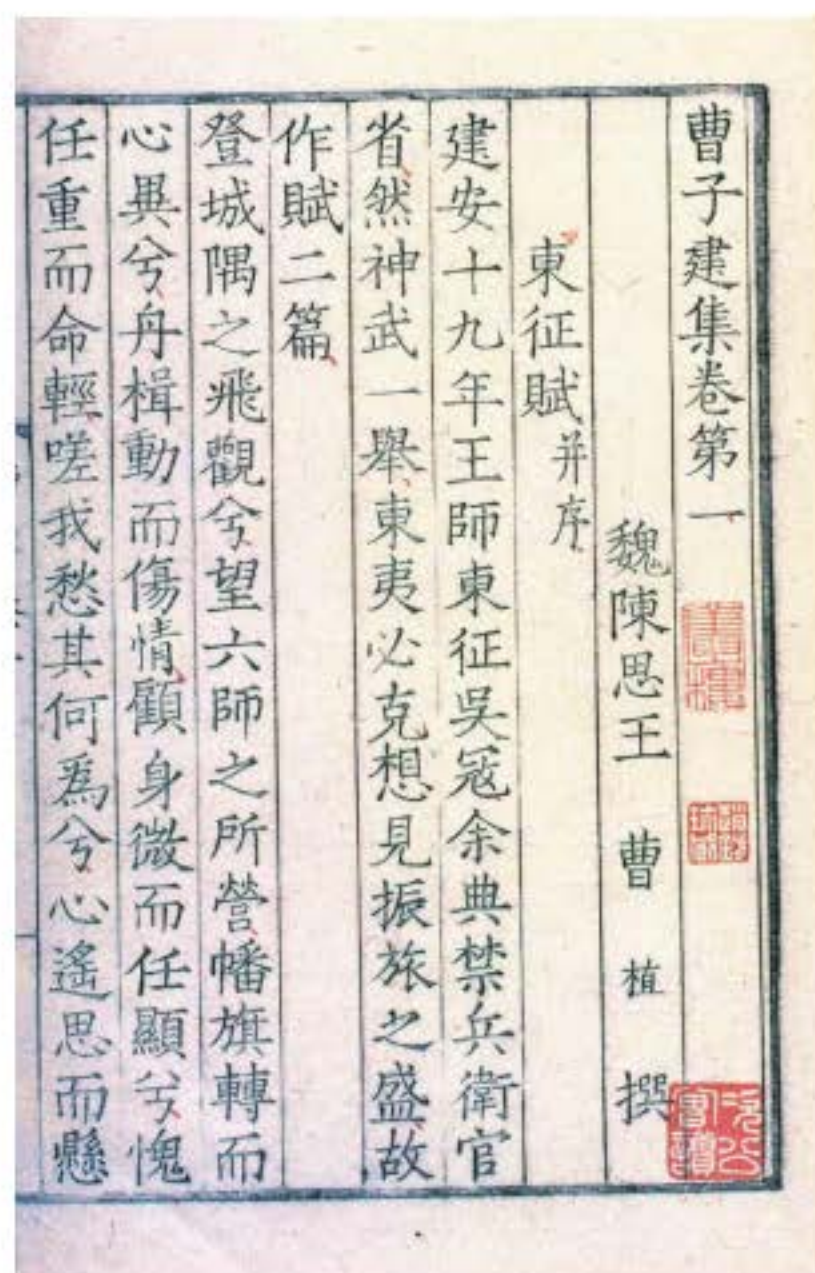 曹子建集卷第一
魏陳思王 曹 植 撰
東征賦并序
建安十九年王師東征吳冦余典禁兵衛官
省然神武一舉東夷必克想見振旅之盛故
作賦二篇
登城隅之飛觀兮望六師之所營幡旗轉而
心異兮舟楫動而傷情顧身微而任顯兮愧
任重而命輕嗟我愁其何為兮心遙思而懸